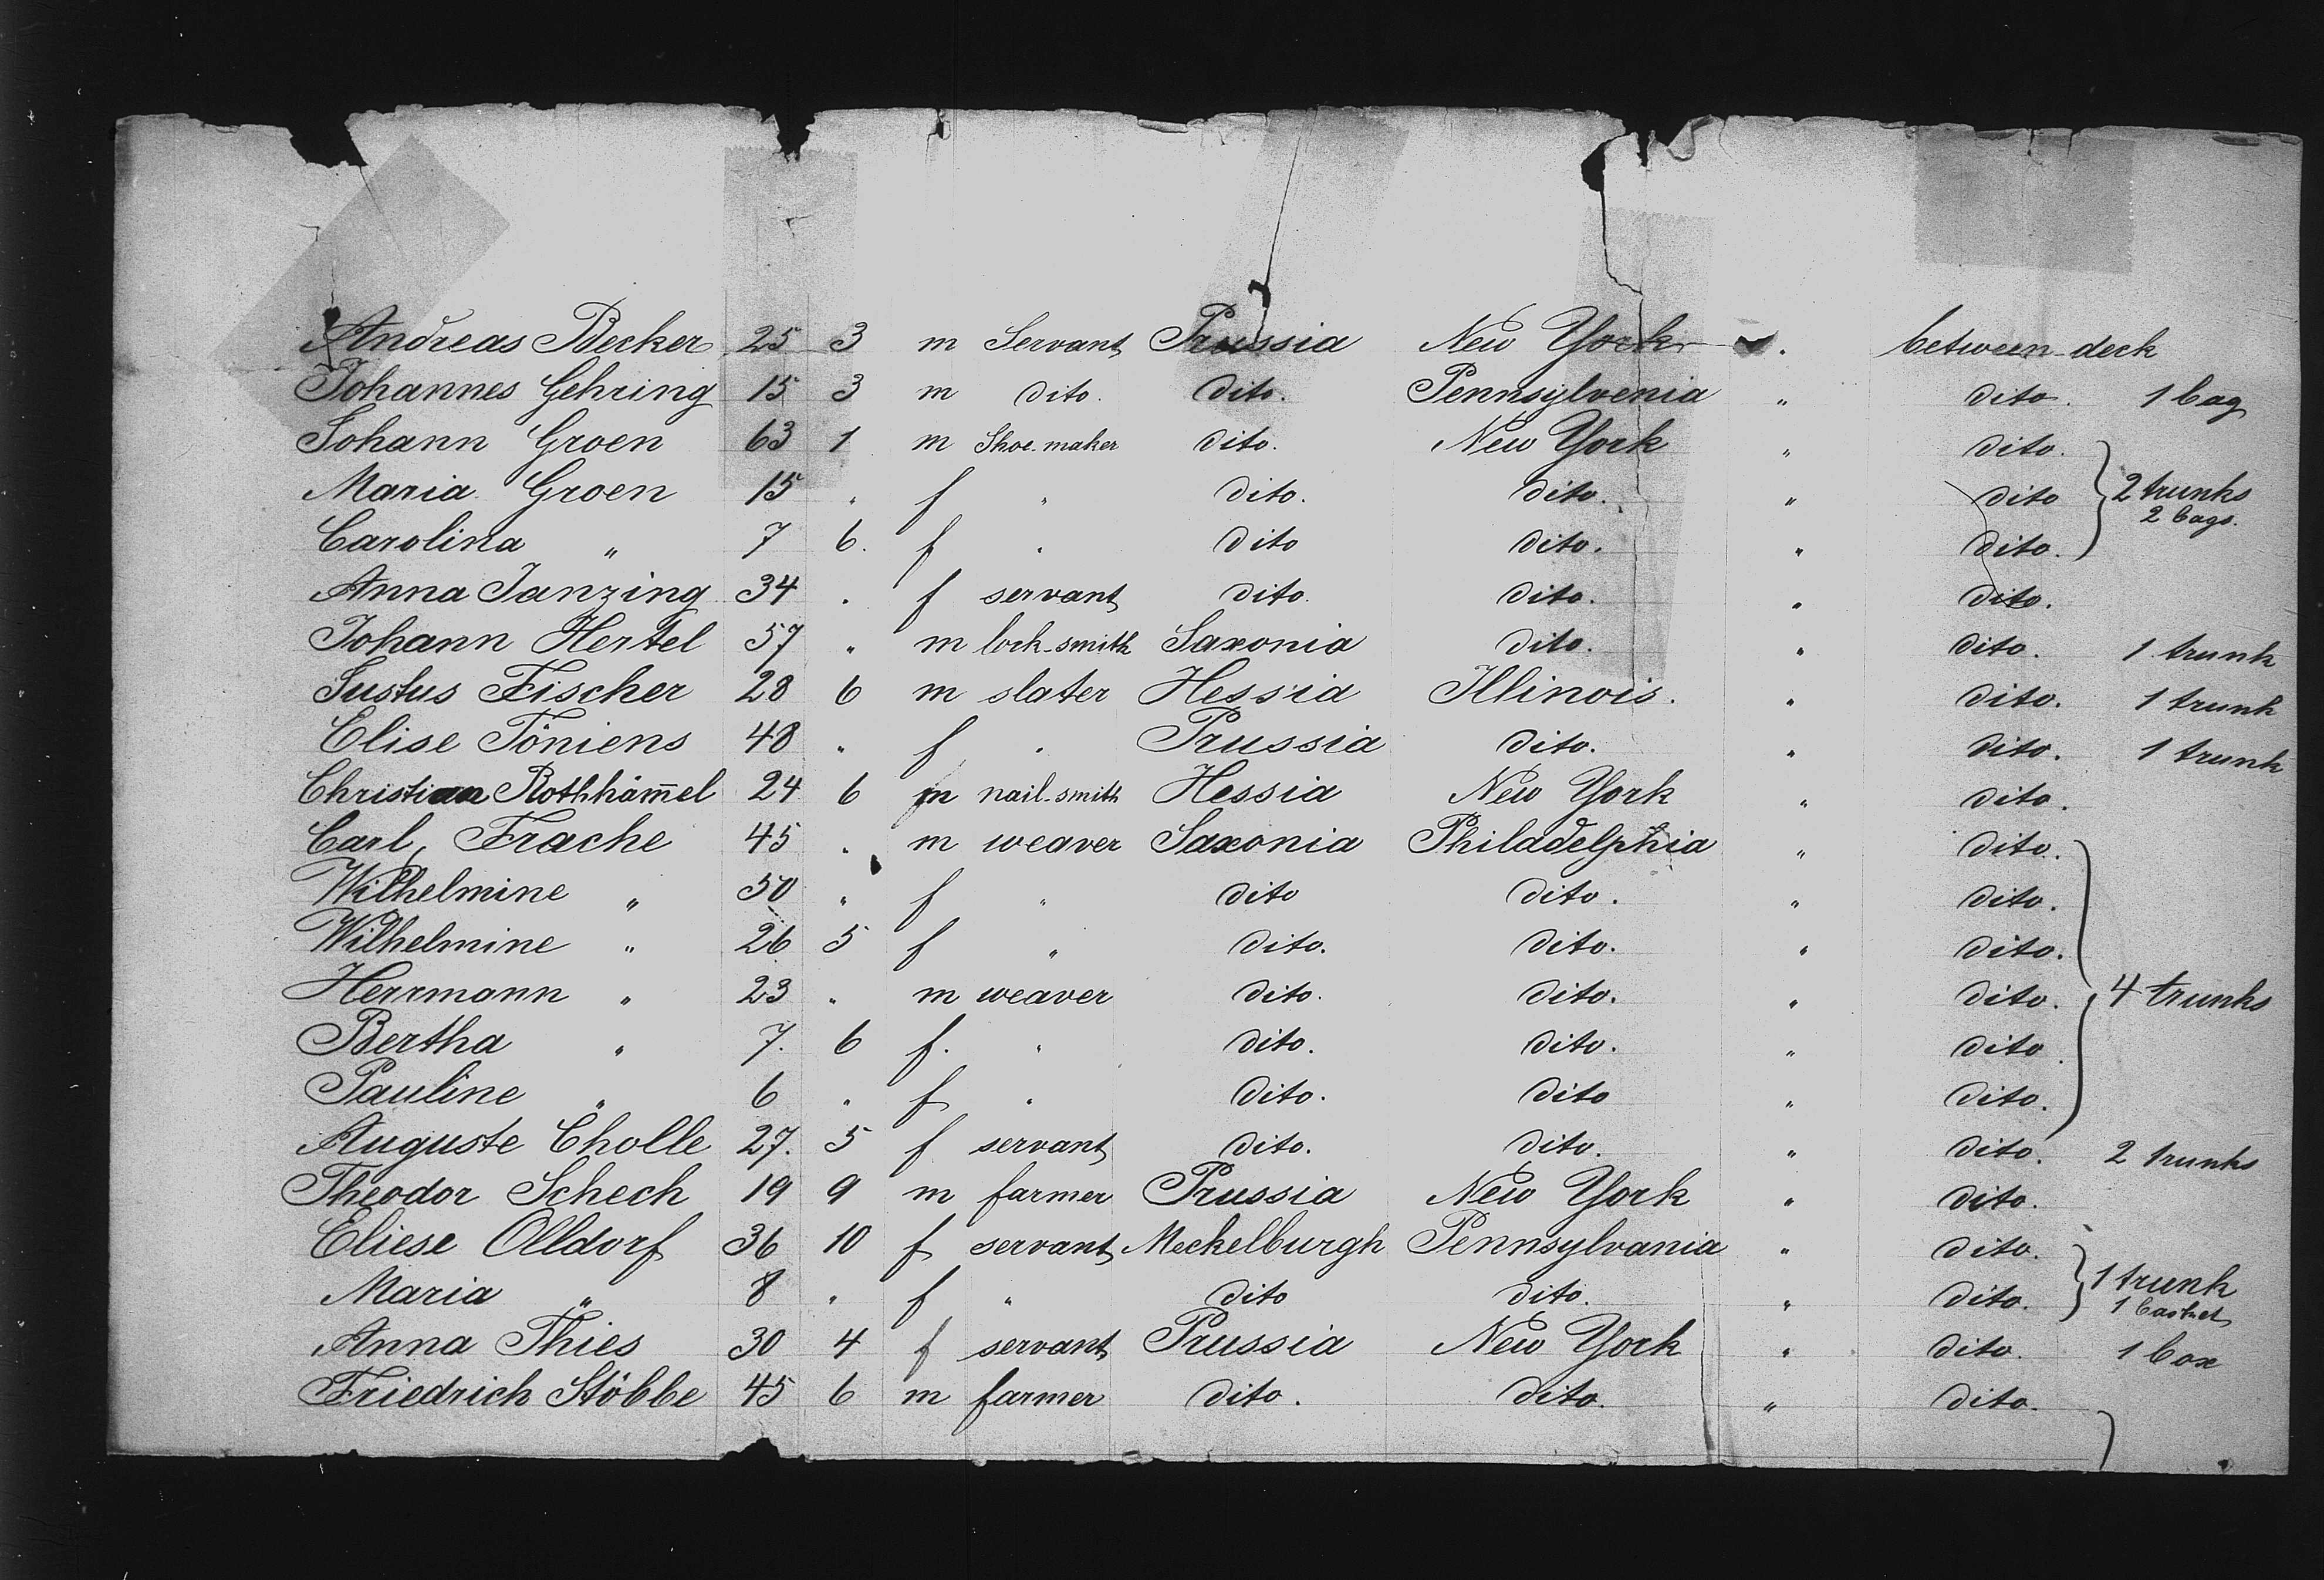 Andreas Becker 25 3 m Servant Prussia New York " between deck
Johannes Gehring 15 3 m dito. dito. Pennsylvenia " dito. 1 bag
Johann Groen 63 1 m Shoe-maker dito. New York " dito.
Maria Groen 15 " f " dito. dito. " dito 2 trunks
2 bags.
Carolina " 7 6. f " dito dito. " dito.
Anna Janzing 34 " f servant dito. dito. " dito.
Johann Hertel 57 " m lock-smith Saxonia dito. " dito. 1 trunk
Justus Fischer 28 6 m slater Hessia Illinois. " dito. 1 trunk
Elise Töniens 48 " f " Prussia dito. " dito. 1 trunk
Christian Rothhäm̄el 24 6 m nail-smith Hessia New York " dito.
Carl Frache 45 " m weaver Saxonia Philadelphia " dito.
Wilhelmine " 50 " f " dito dito. " dito.
Wilhelmine " 26 5 f " dito. dito. " dito.
Herrmann " 23 " m weaver dito. dito. " dito. 4 trunks
Bertha " 7. 6 f. " dito. dito. " dito
Pauline " 6 " f " dito. dito " dito.
Auguste Cholle 27. 5 f servant dito. dito. " dito. 2 trunks
Theodor Schech 19 9 m farmer Prussia New York " dito.
Eliese Olldorf 36 10 f servant Meckelburgh Pennsylvania " dito.
Maria " 8 " f " dito dito. " dito. 1 trunk
1 basket
Anna Thies 30 4 f servant Prussia New York " dito. 1 box
Friedrich Stöbbe 45 6 m farmer dito. dito. " dito.